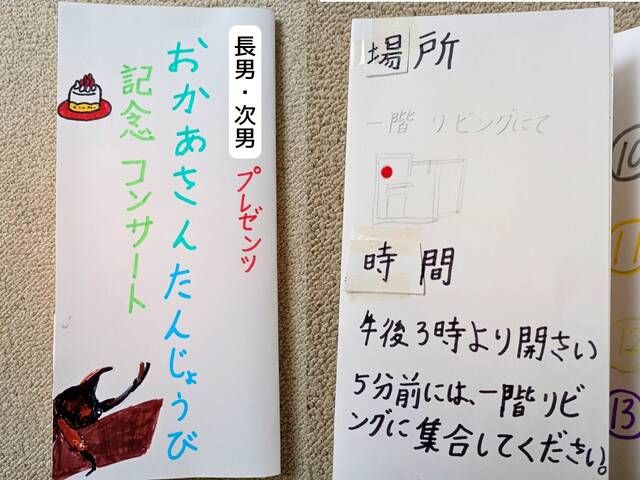 長男・次男
プレゼンツ
おかあさんたんじょうび
記念 コンサート
場所
一階 リビングにて
時間
午後3時より開さい
5分前には、一階リビ
ングに集合してください。
10
11
12
13